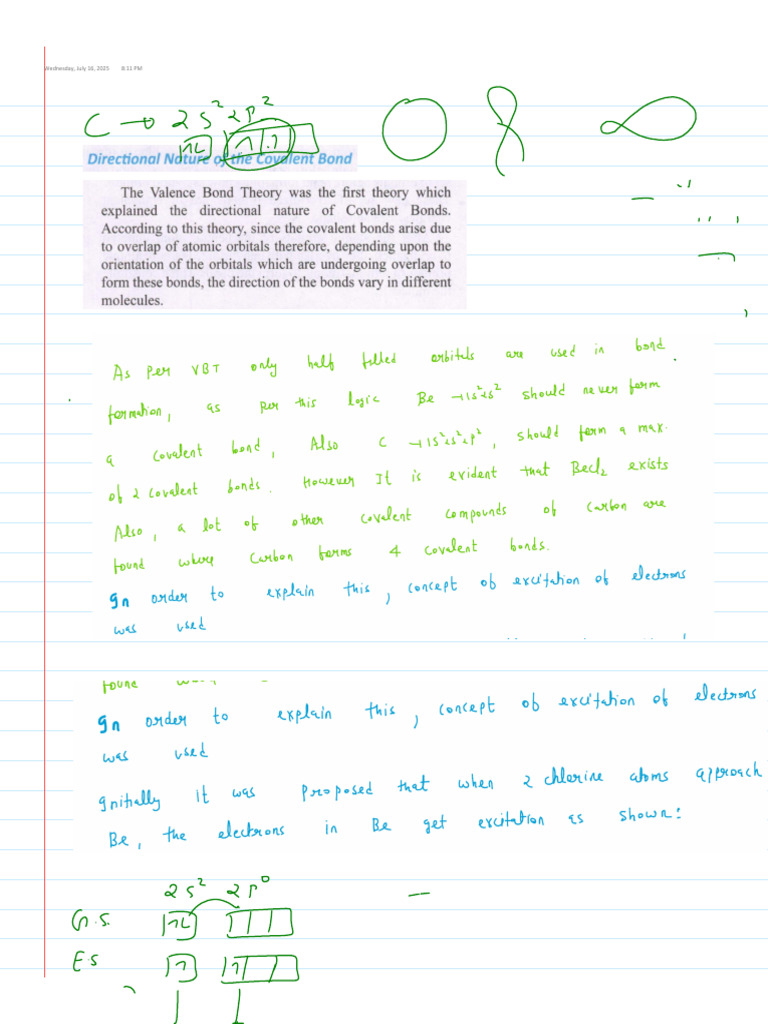 Wednesday, July 16, 2025 8:11 PM
C → 2s² 2p²
Directional Nature of the Covalent Bond
The Valence Bond Theory was the first theory which
explained the directional nature of Covalent Bonds.
According to this theory, since the covalent bonds arise due
to overlap of atomic orbitals therefore, depending upon the
orientation of the orbitals which are undergoing overlap to
form these bonds, the direction of the bonds vary in different
molecules.
As per VBT only half filled orbitals are used in bond
formation, as per this logic Be → 1s²2s² should never form
a covalent bond, Also C → 1s²2s²2p², should form a max.
of 2 covalent bonds. However It is evident that BeCl₂ exists
Also, a lot of other covalent compounds of carbon are
found where Carbon forms 4 covalent bonds.
In order to explain this, concept of excitation of electrons
was used
found
In order to explain this, concept of excitation of electrons
was used
Initially It was proposed that when 2 chlorine atoms approach
Be, the electrons in Be get excitation as shown:
2s² 2p⁰
G.S.
E.S